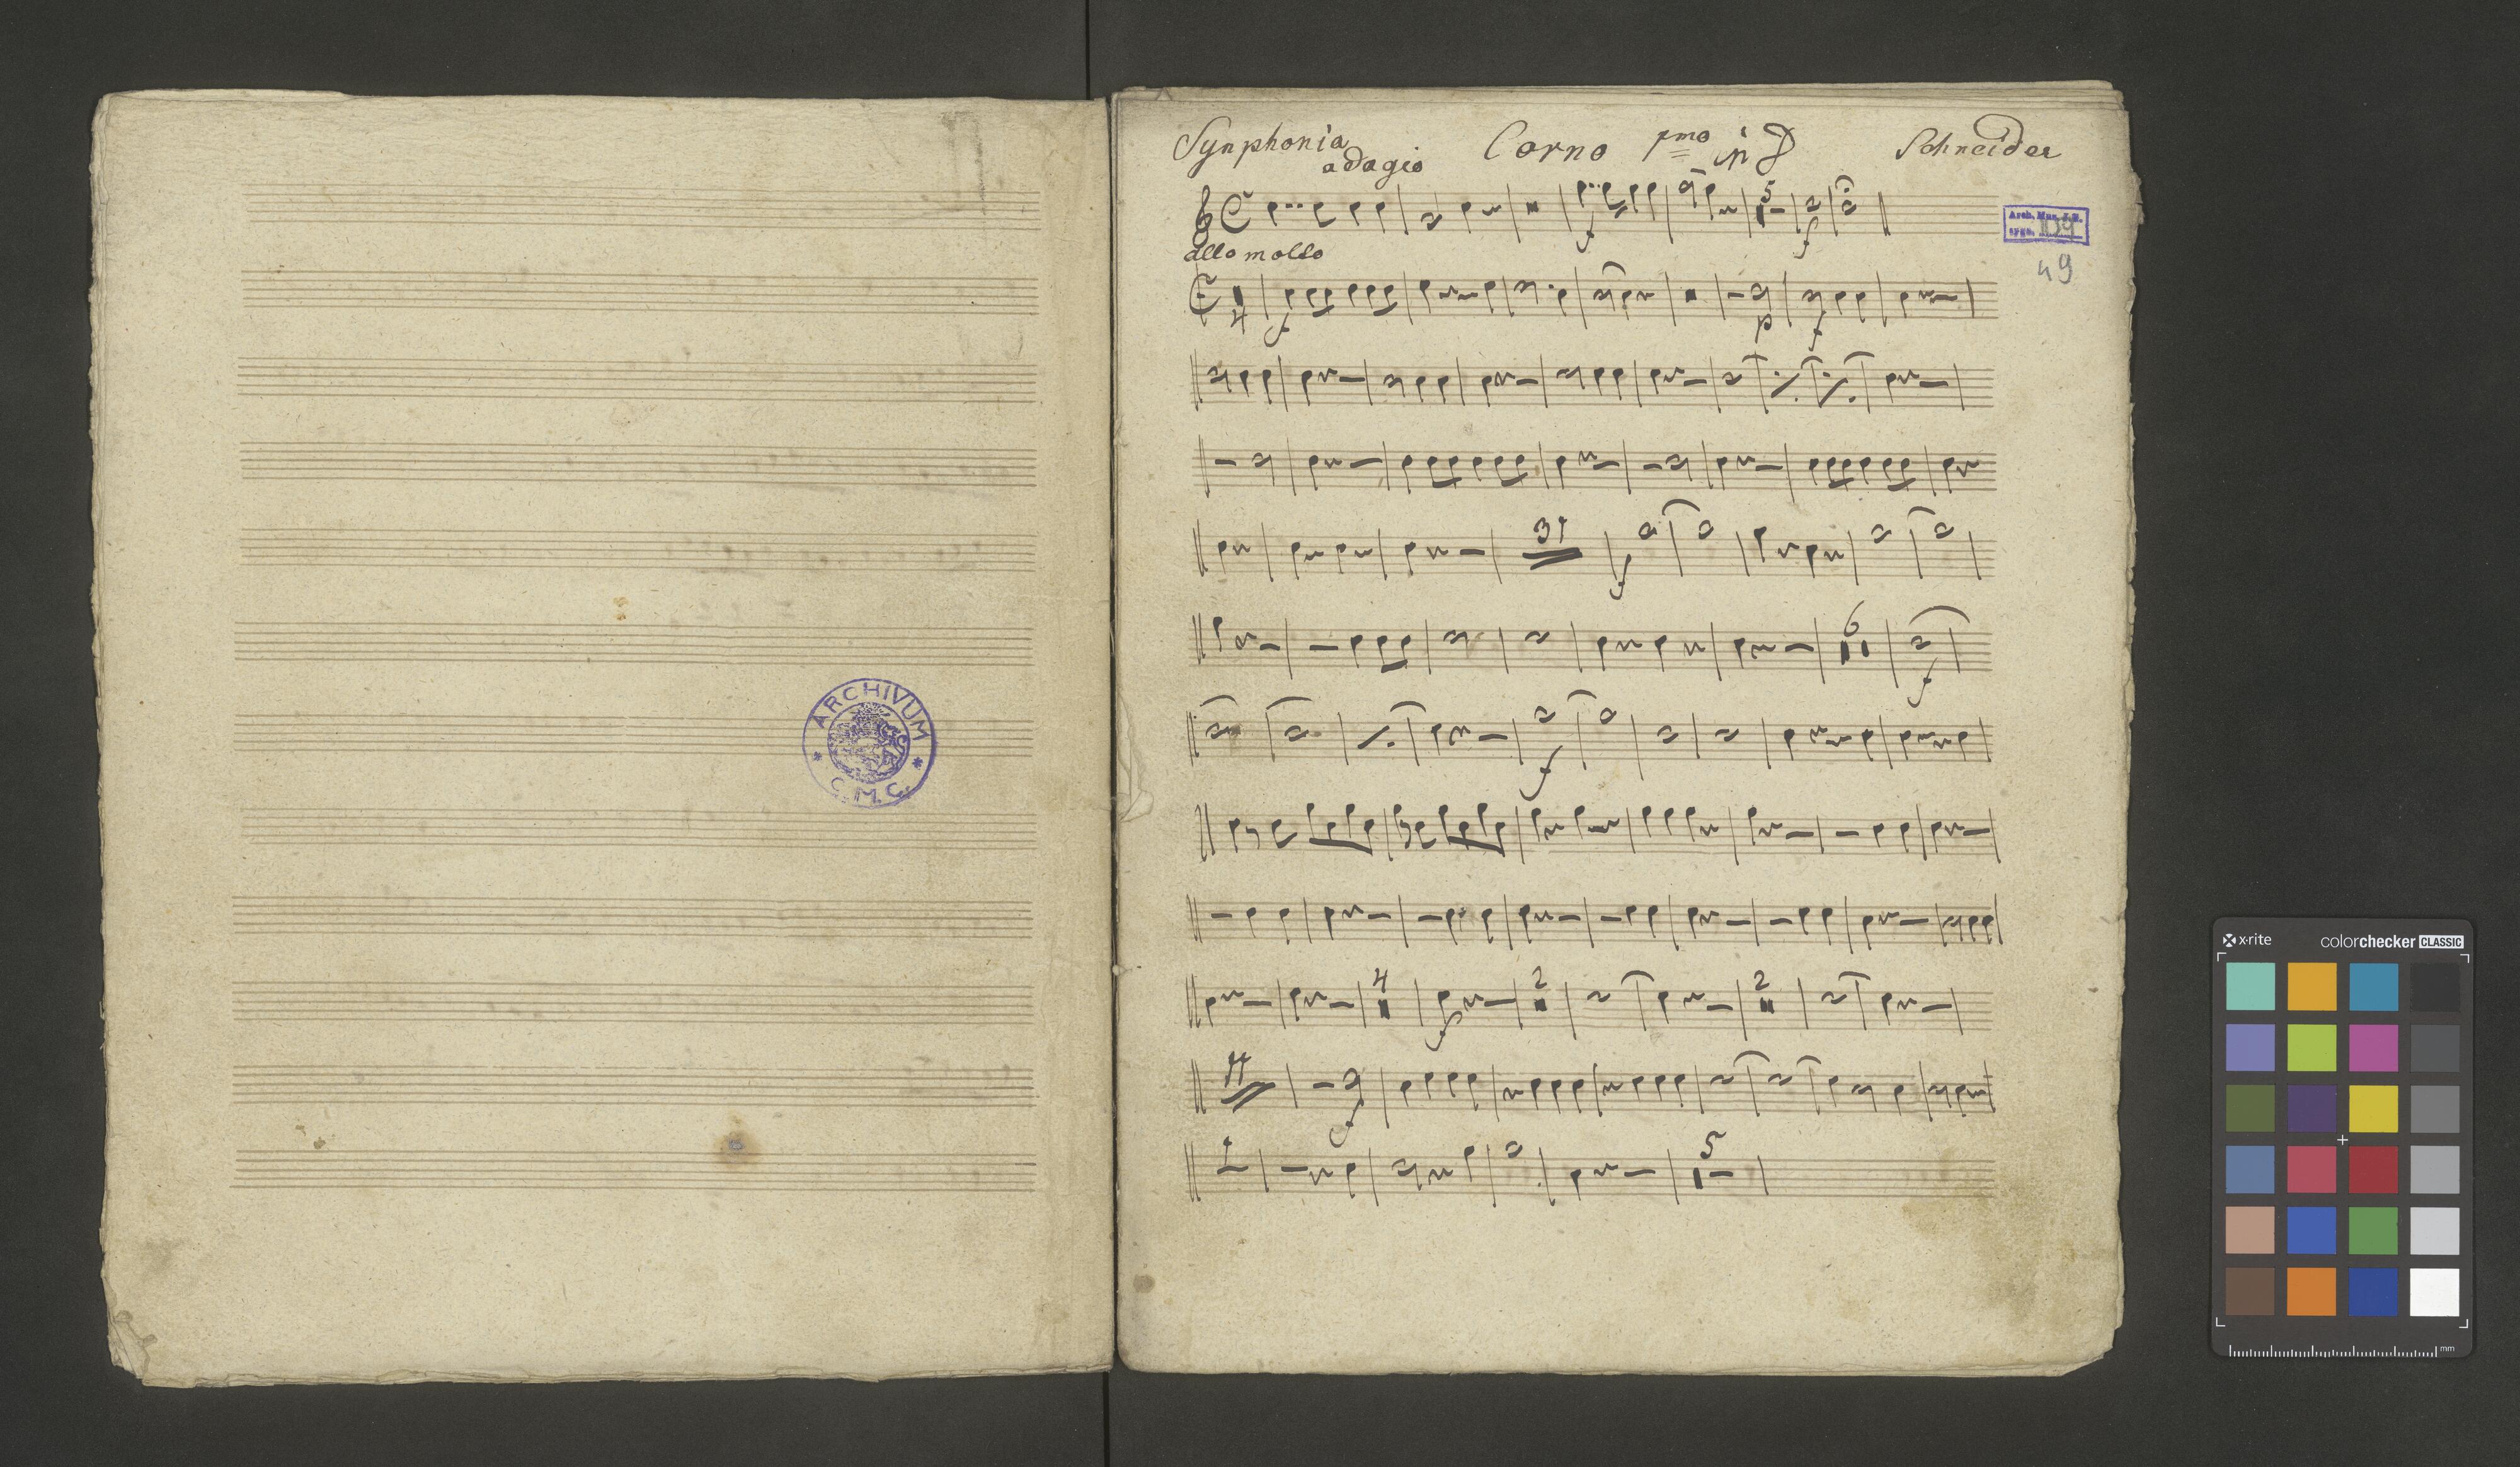 ARCHIVUM
C. M. C.
Synphonia Corno pmo in D Schneider
adagio
f 5 f
Arch. Mus. J.G.
sygn. 104
49
allo molto
4 f p f
31 f
6 f
f
4 f 2 2
f
1 5
x-rite colorchecker CLASSIC
mm